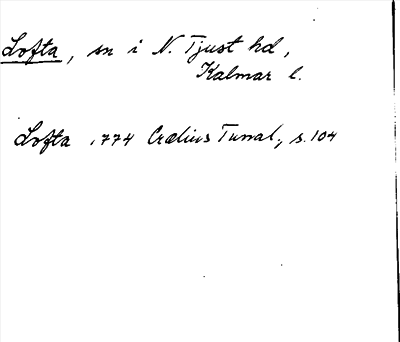 Lofta, sn i N. Tjust hd,
Kalmar l.
Lofta 1774 Crælius Tunal., s. 104